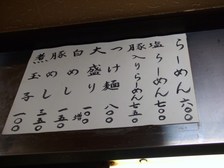 らーめん 六〇〇
塩らーめん 七〇〇
豚入りらーめん 七五〇
つけ麺 八〇〇
大盛り 増 一〇〇
白めし 一五〇
豚めし 三五〇
煮玉子 一〇〇